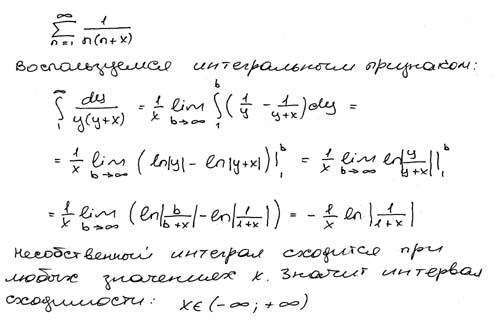 ∞
∑ 1/(n(n+x))
n=1
Воспользуемся интегральным признаком:
∫₁^∞ dy/(y(y+x)) = 1/x lim_{b→∞} ∫₁^b (1/y - 1/(y+x)) dy =
= 1/x lim_{b→∞} (ln|y| - ln|y+x|)|₁^b = 1/x lim_{b→∞} ln|y/(y+x)||₁^b
= 1/x lim_{b→∞} (ln|b/(b+x)| - ln|1/(1+x)|) = - 1/x ln|1/(1+x)|
Несобственный интеграл сходится при
любых значениях x. Значит интервал
сходимости: x∈(-∞; +∞)